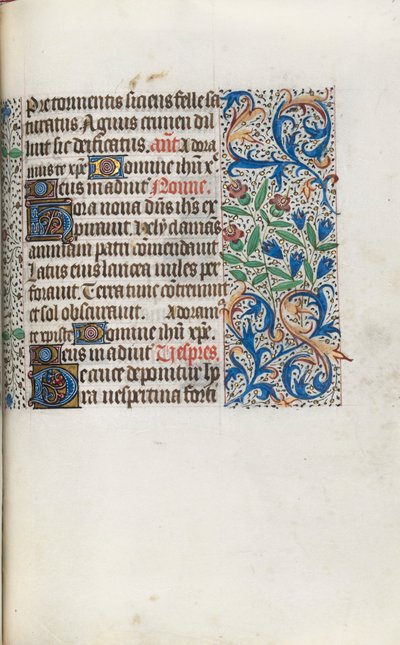 Pre tormentis siciens felle sa
turatus Agnus crimen dil
luit sic deificatus. ant Adora
mus te xpe Domine ihu x
Deus in adiut Nonne.
Hora nona dns ihs ex
pirauit. Hely clamans
animam patri commendauit
Latus eius lancea miles per
forauit. Terra tunc contremuit
et sol obscurauit. Adoram
te xpiste Domine ihu xpe
Deus in adiut Vespres
De cruce deponitur hp
ra vespertina forti